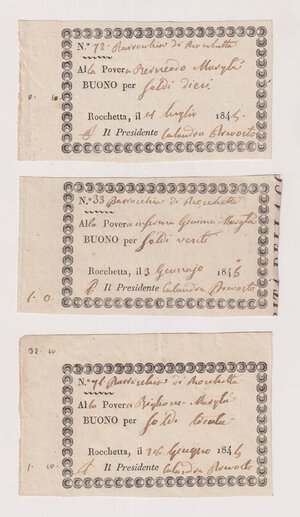 N.º 72. Parrocchia di Rocchetta
Alla Povera
BUONO per Soldi dieci
0. 10
Rocchetta, il luglio 1845
Il Presidente Calandra Prevosto
N.º 33 Parrocchia di Rocchetta
Alla Povera inferma
BUONO per Soldi venti
Rocchetta, il 3 Gennajo 1845
1. 0.
Il Presidente Calandra Prevosto
N.º 78 Parrocchia di Rocchetta
Alla Povera
BUONO per Soldi
Rocchetta, il 26 Giugno 1845
1. 10.
Il Presidente Calandra Prevosto